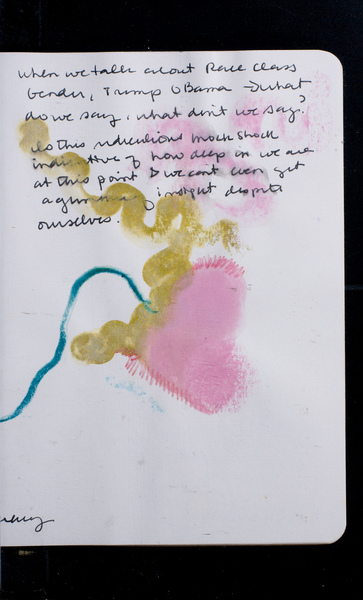 When we talk about Race Class
Gender, Trump Obama → what
do we say, what don't we say?
Is this ridiculous mock shock
indicative of how deep in we are
at this point & we cant even get
a glimmer of insight despite
ourselves.